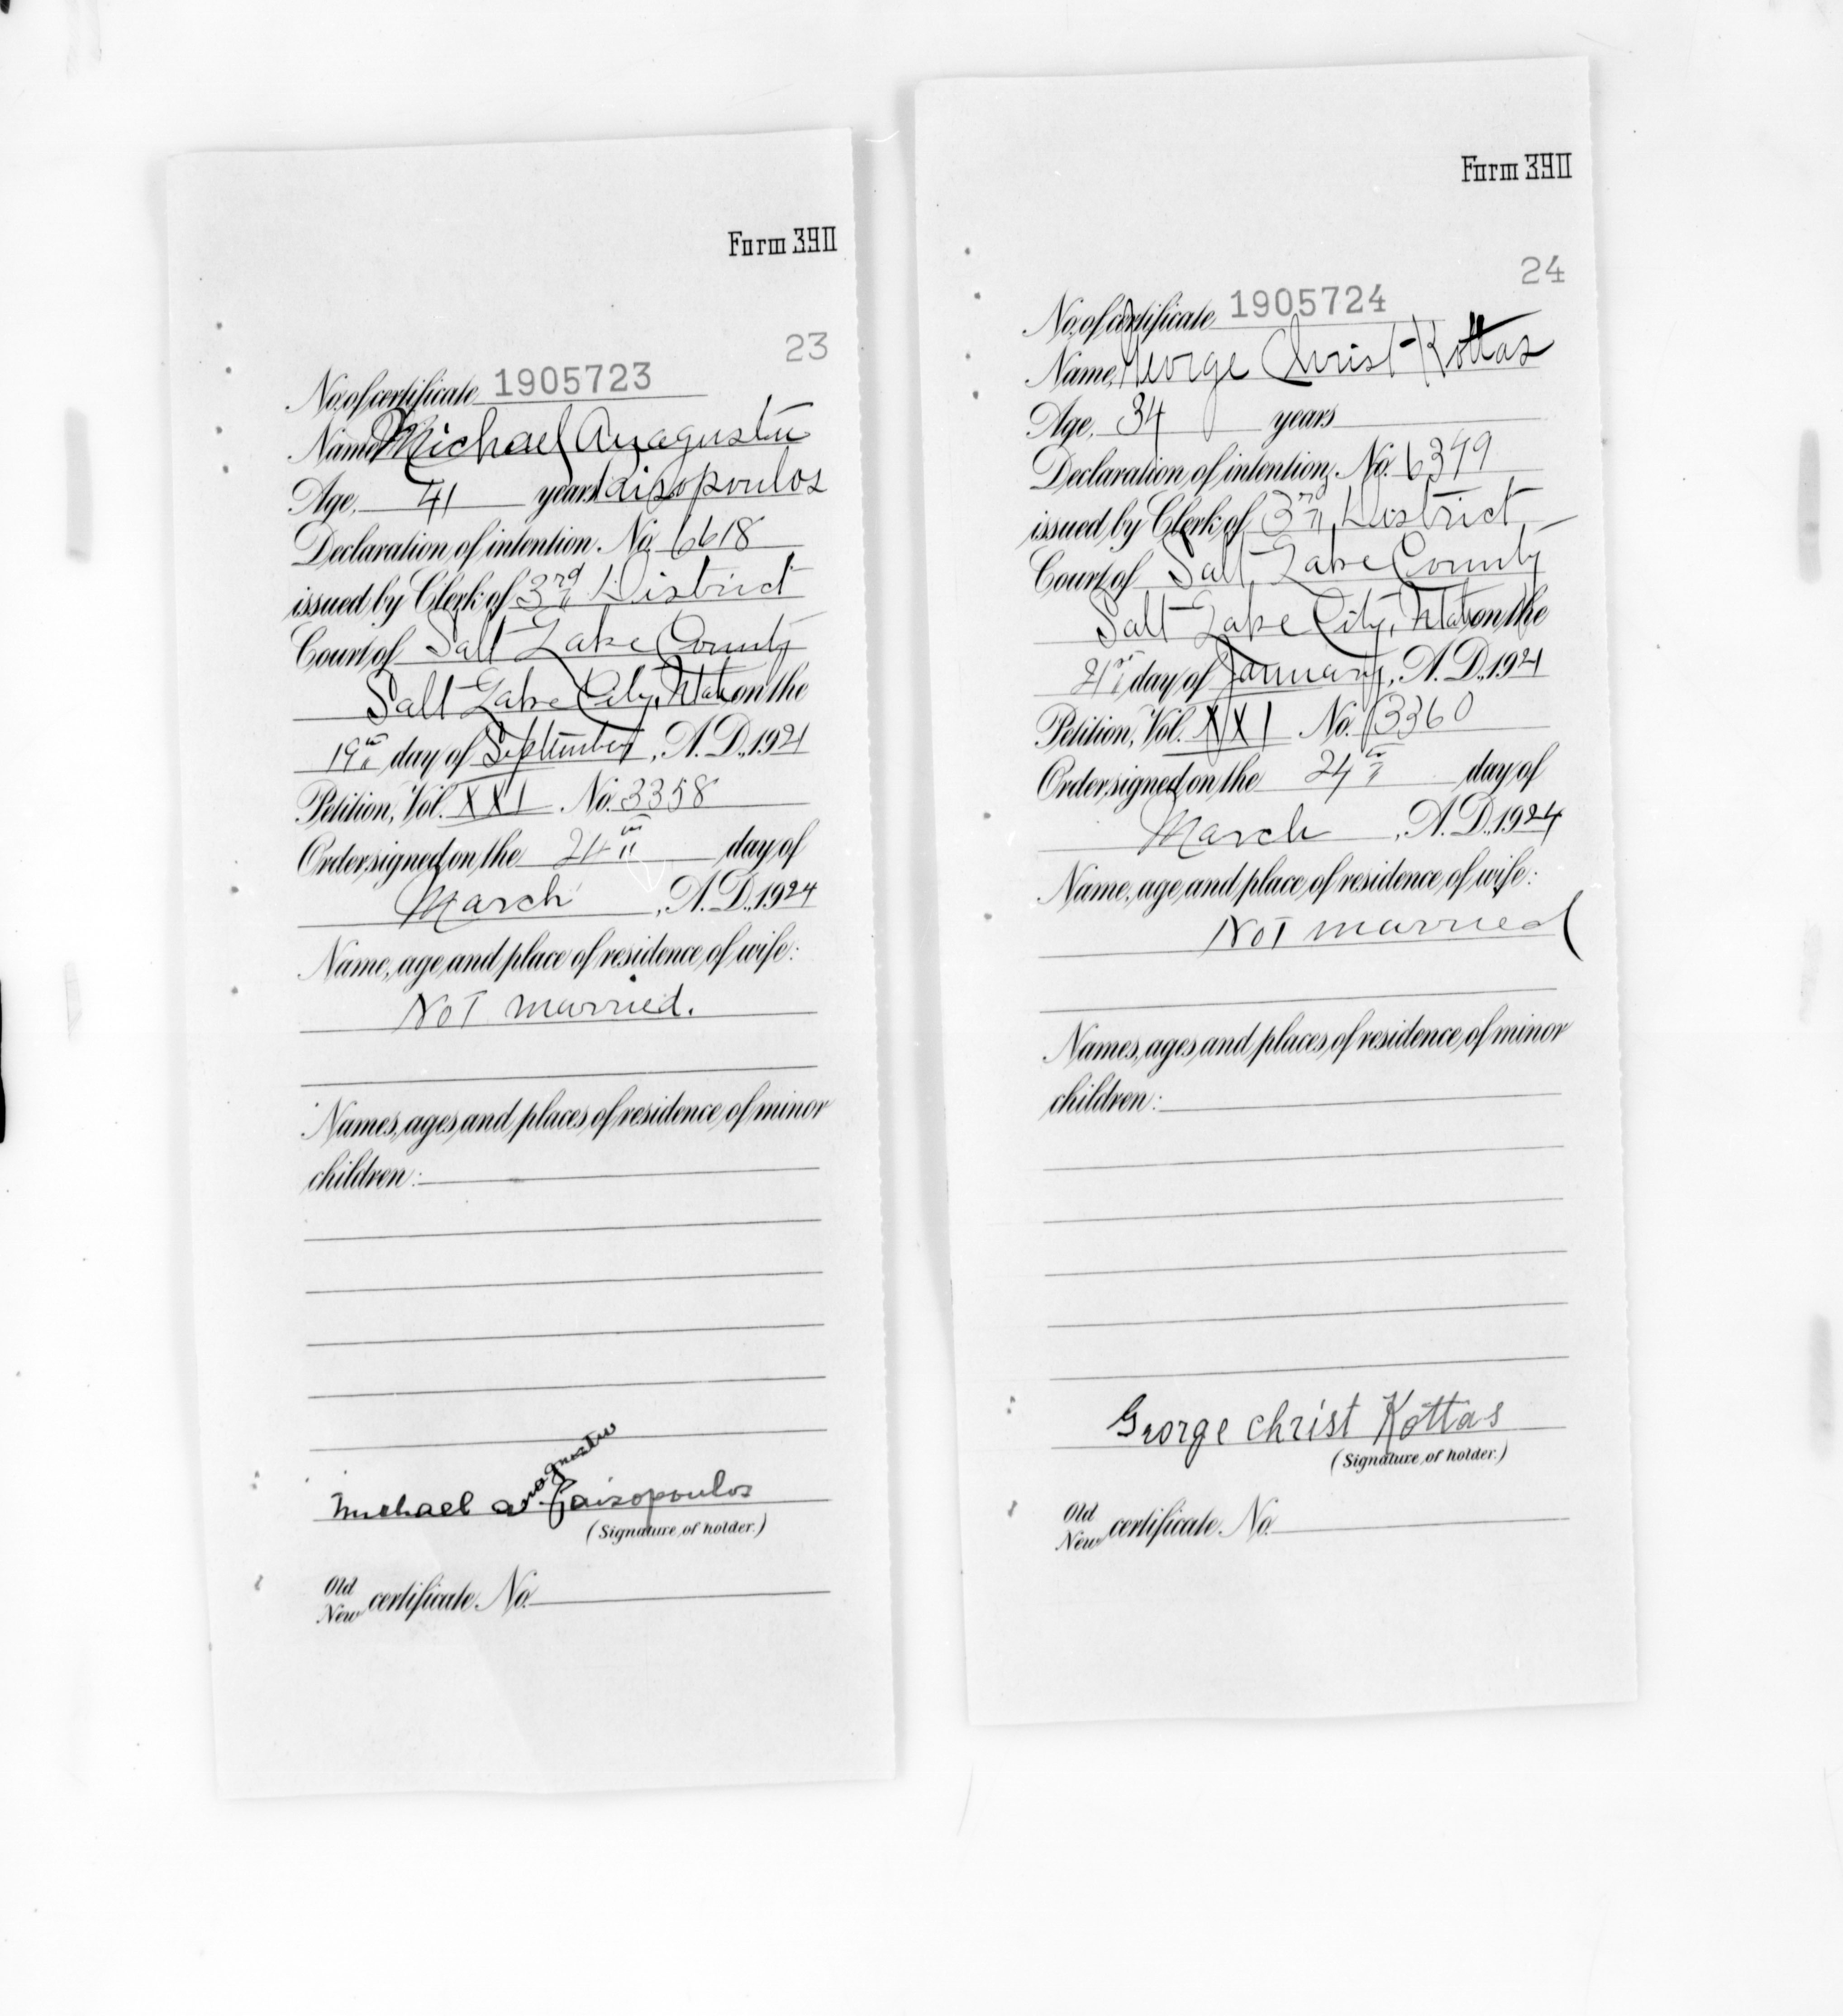 Form 390
23
No. of certificate 1905723
Name Michael Anagustu
Age, 41 years Laisopoulos
Declaration of intention No. 6618
issued by Clerk of 3rd District
Court of Salt Lake County
Salt Lake City, Utah on the
19th day of September, A.D., 1921
Petition, Vol. XXI No. 3358
Order signed on the 24th day of
March, A.D., 1924
Name, age and place of residence of wife:
Not married.
Names, ages and places of residence of minor
children:
Michael Anagnostu
(Signature of holder.)
Old
New certificate No.
Form 390
24
No. of certificate 1905724
Name, George Christ Kottas
Age, 34 years
Declaration of intention, No. 6379
issued by Clerk of 3rd District
Court of Salt Lake County
Salt Lake City, Utah on the
21st day of January, A.D., 1921
Petition, Vol. XXI No. 3360
Order signed on the 24th day of
March, A.D., 1924
Name, age and place of residence of wife:
Not married
Names, ages and places of residence of minor
children:
George Christ Kottas
(Signature of holder.)
Old
New certificate No.